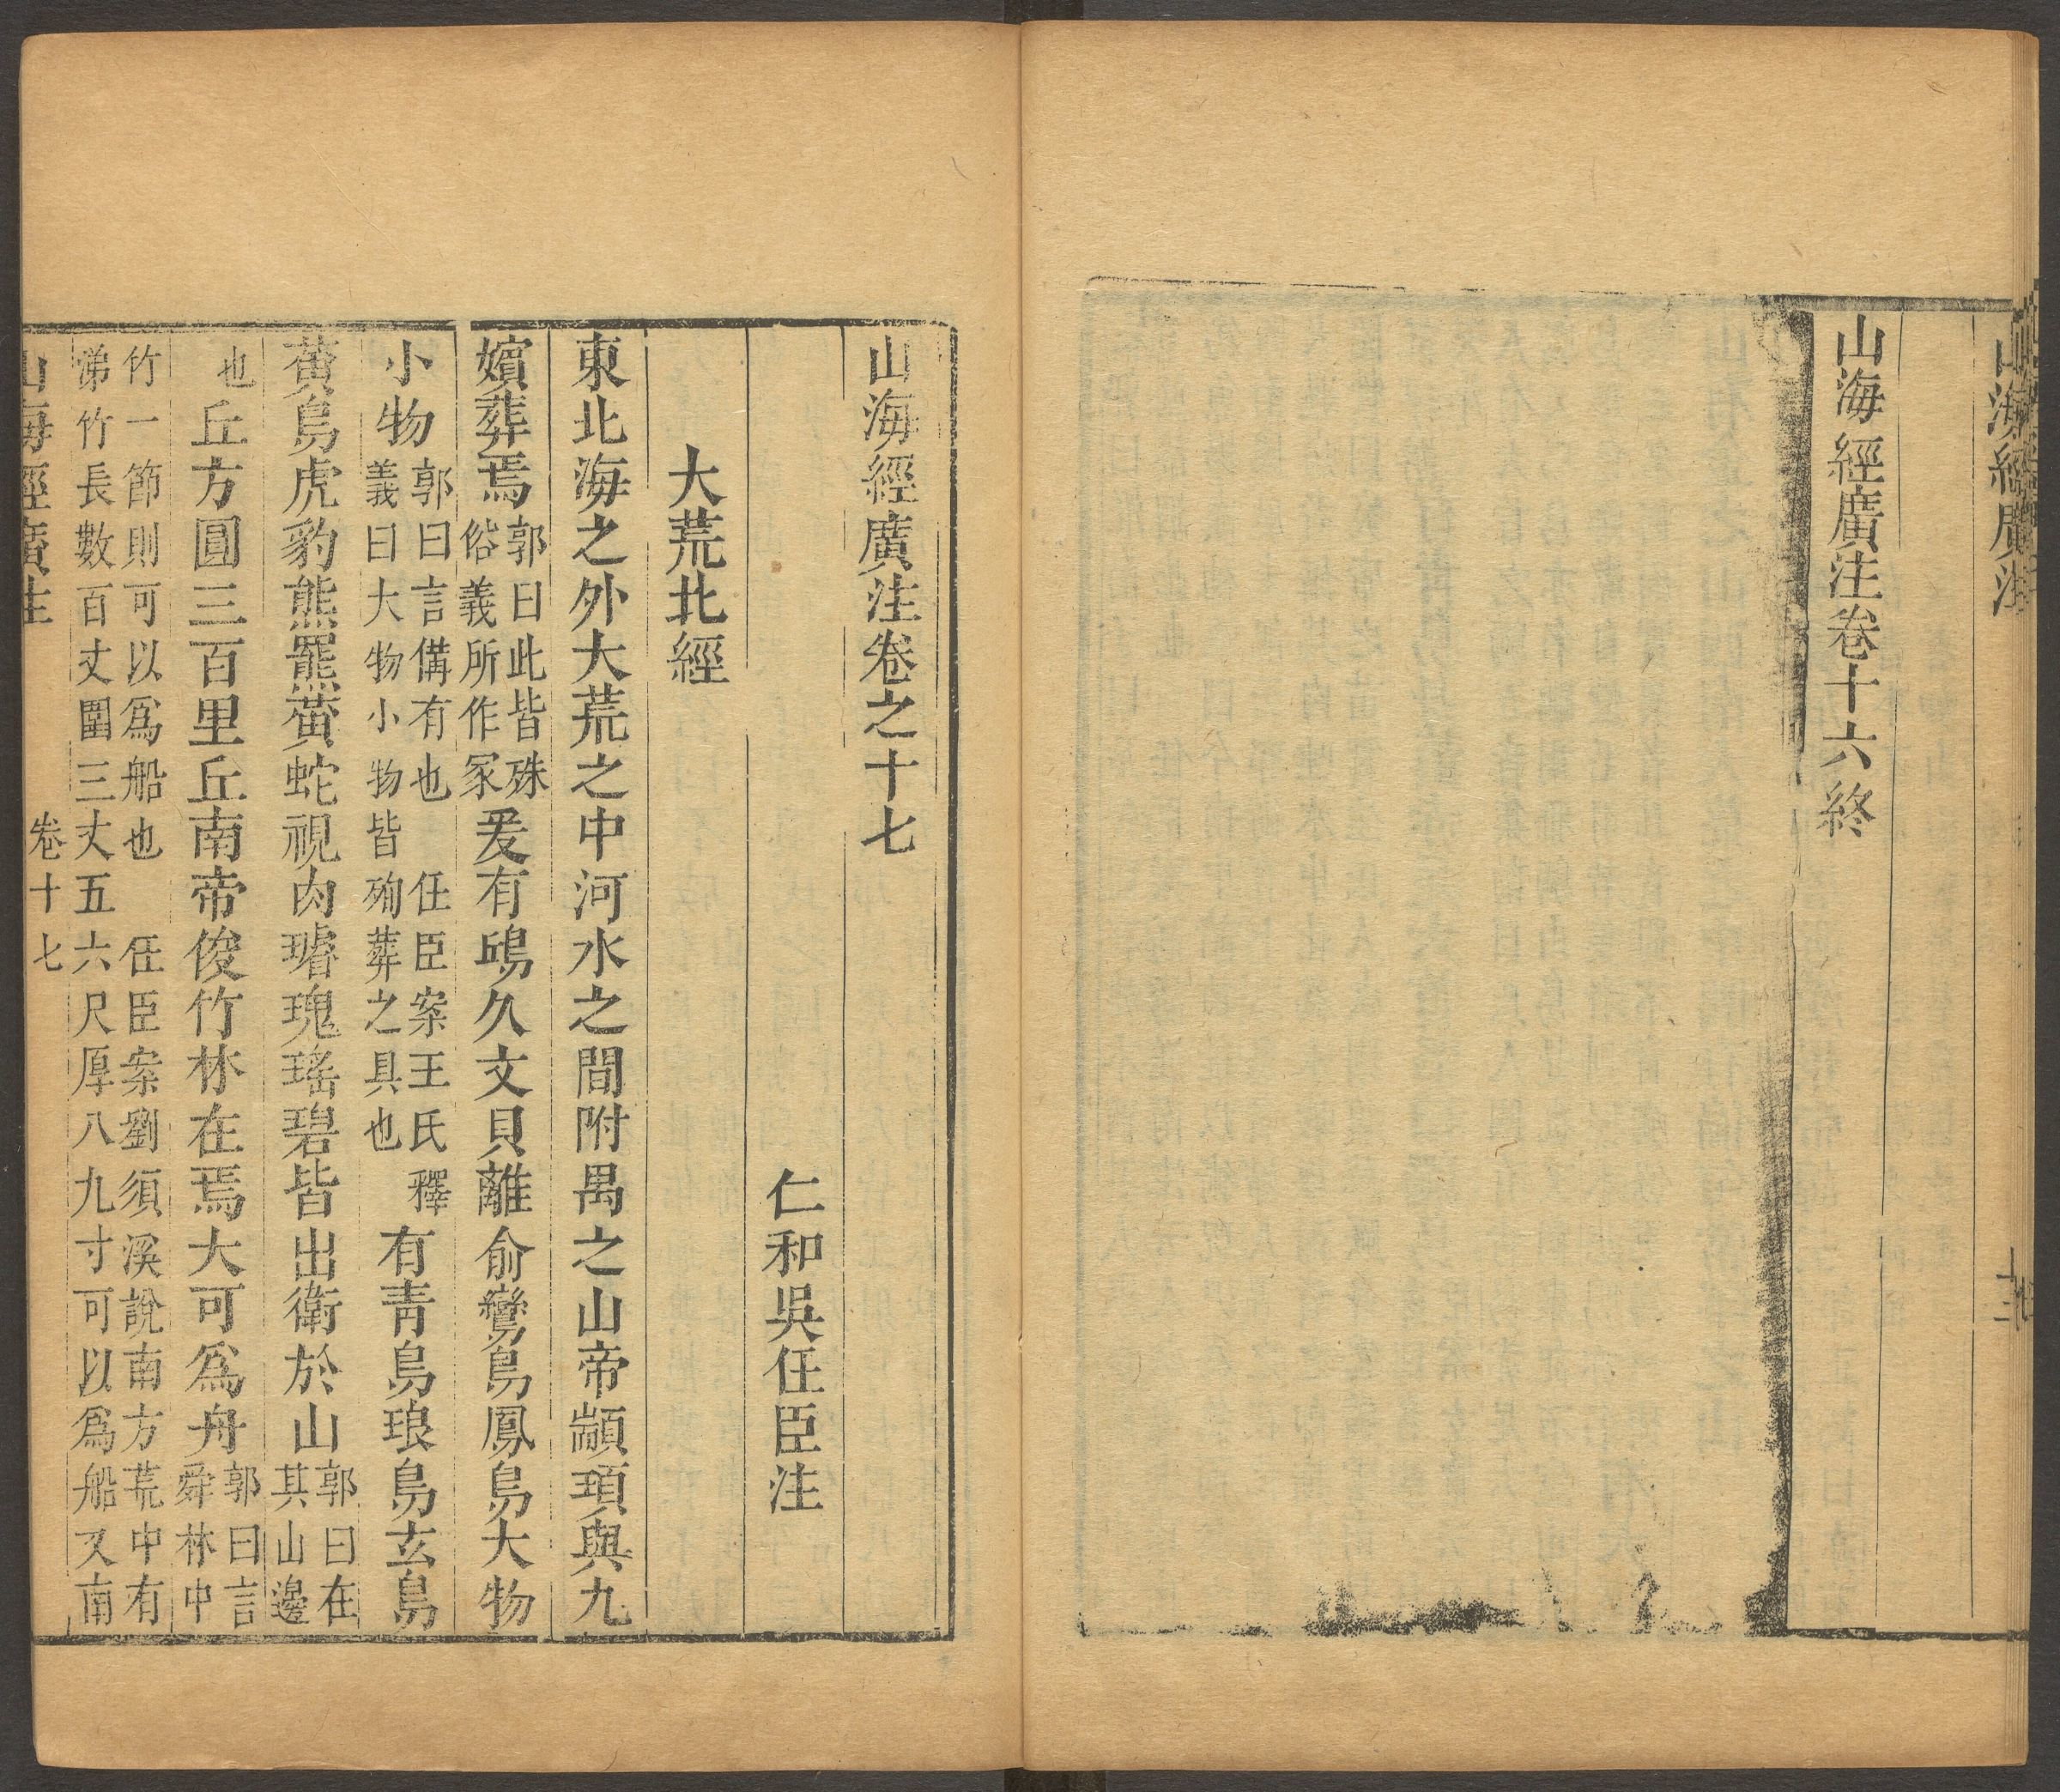 山海經廣注
山海經廣注卷十六終
山海經廣注卷之十七
仁和吳任臣注
大荒北經
東北海之外大荒之中河水之間附禺之山帝顓頊與九
嬪葬焉郭曰此皆殊俗義所作冢爰有鴟久文貝離俞鸞鳥鳳鳥大物
小物郭曰言備有也 任臣案王氏釋義曰大物小物皆殉葬之具也有青鳥琅鳥玄鳥
黃鳥虎豹熊羆黃蛇視肉璿瑰瑤碧皆出衛於山郭曰在其山邊
也丘方圓三百里丘南帝俊竹林在焉大可為舟郭曰言舜林中
竹一節則可以為船也 任臣案劉須溪說南方荒中有
涕竹長數百丈圍三丈五六尺厚八九寸可以為船又南
山海經廣注 卷十七